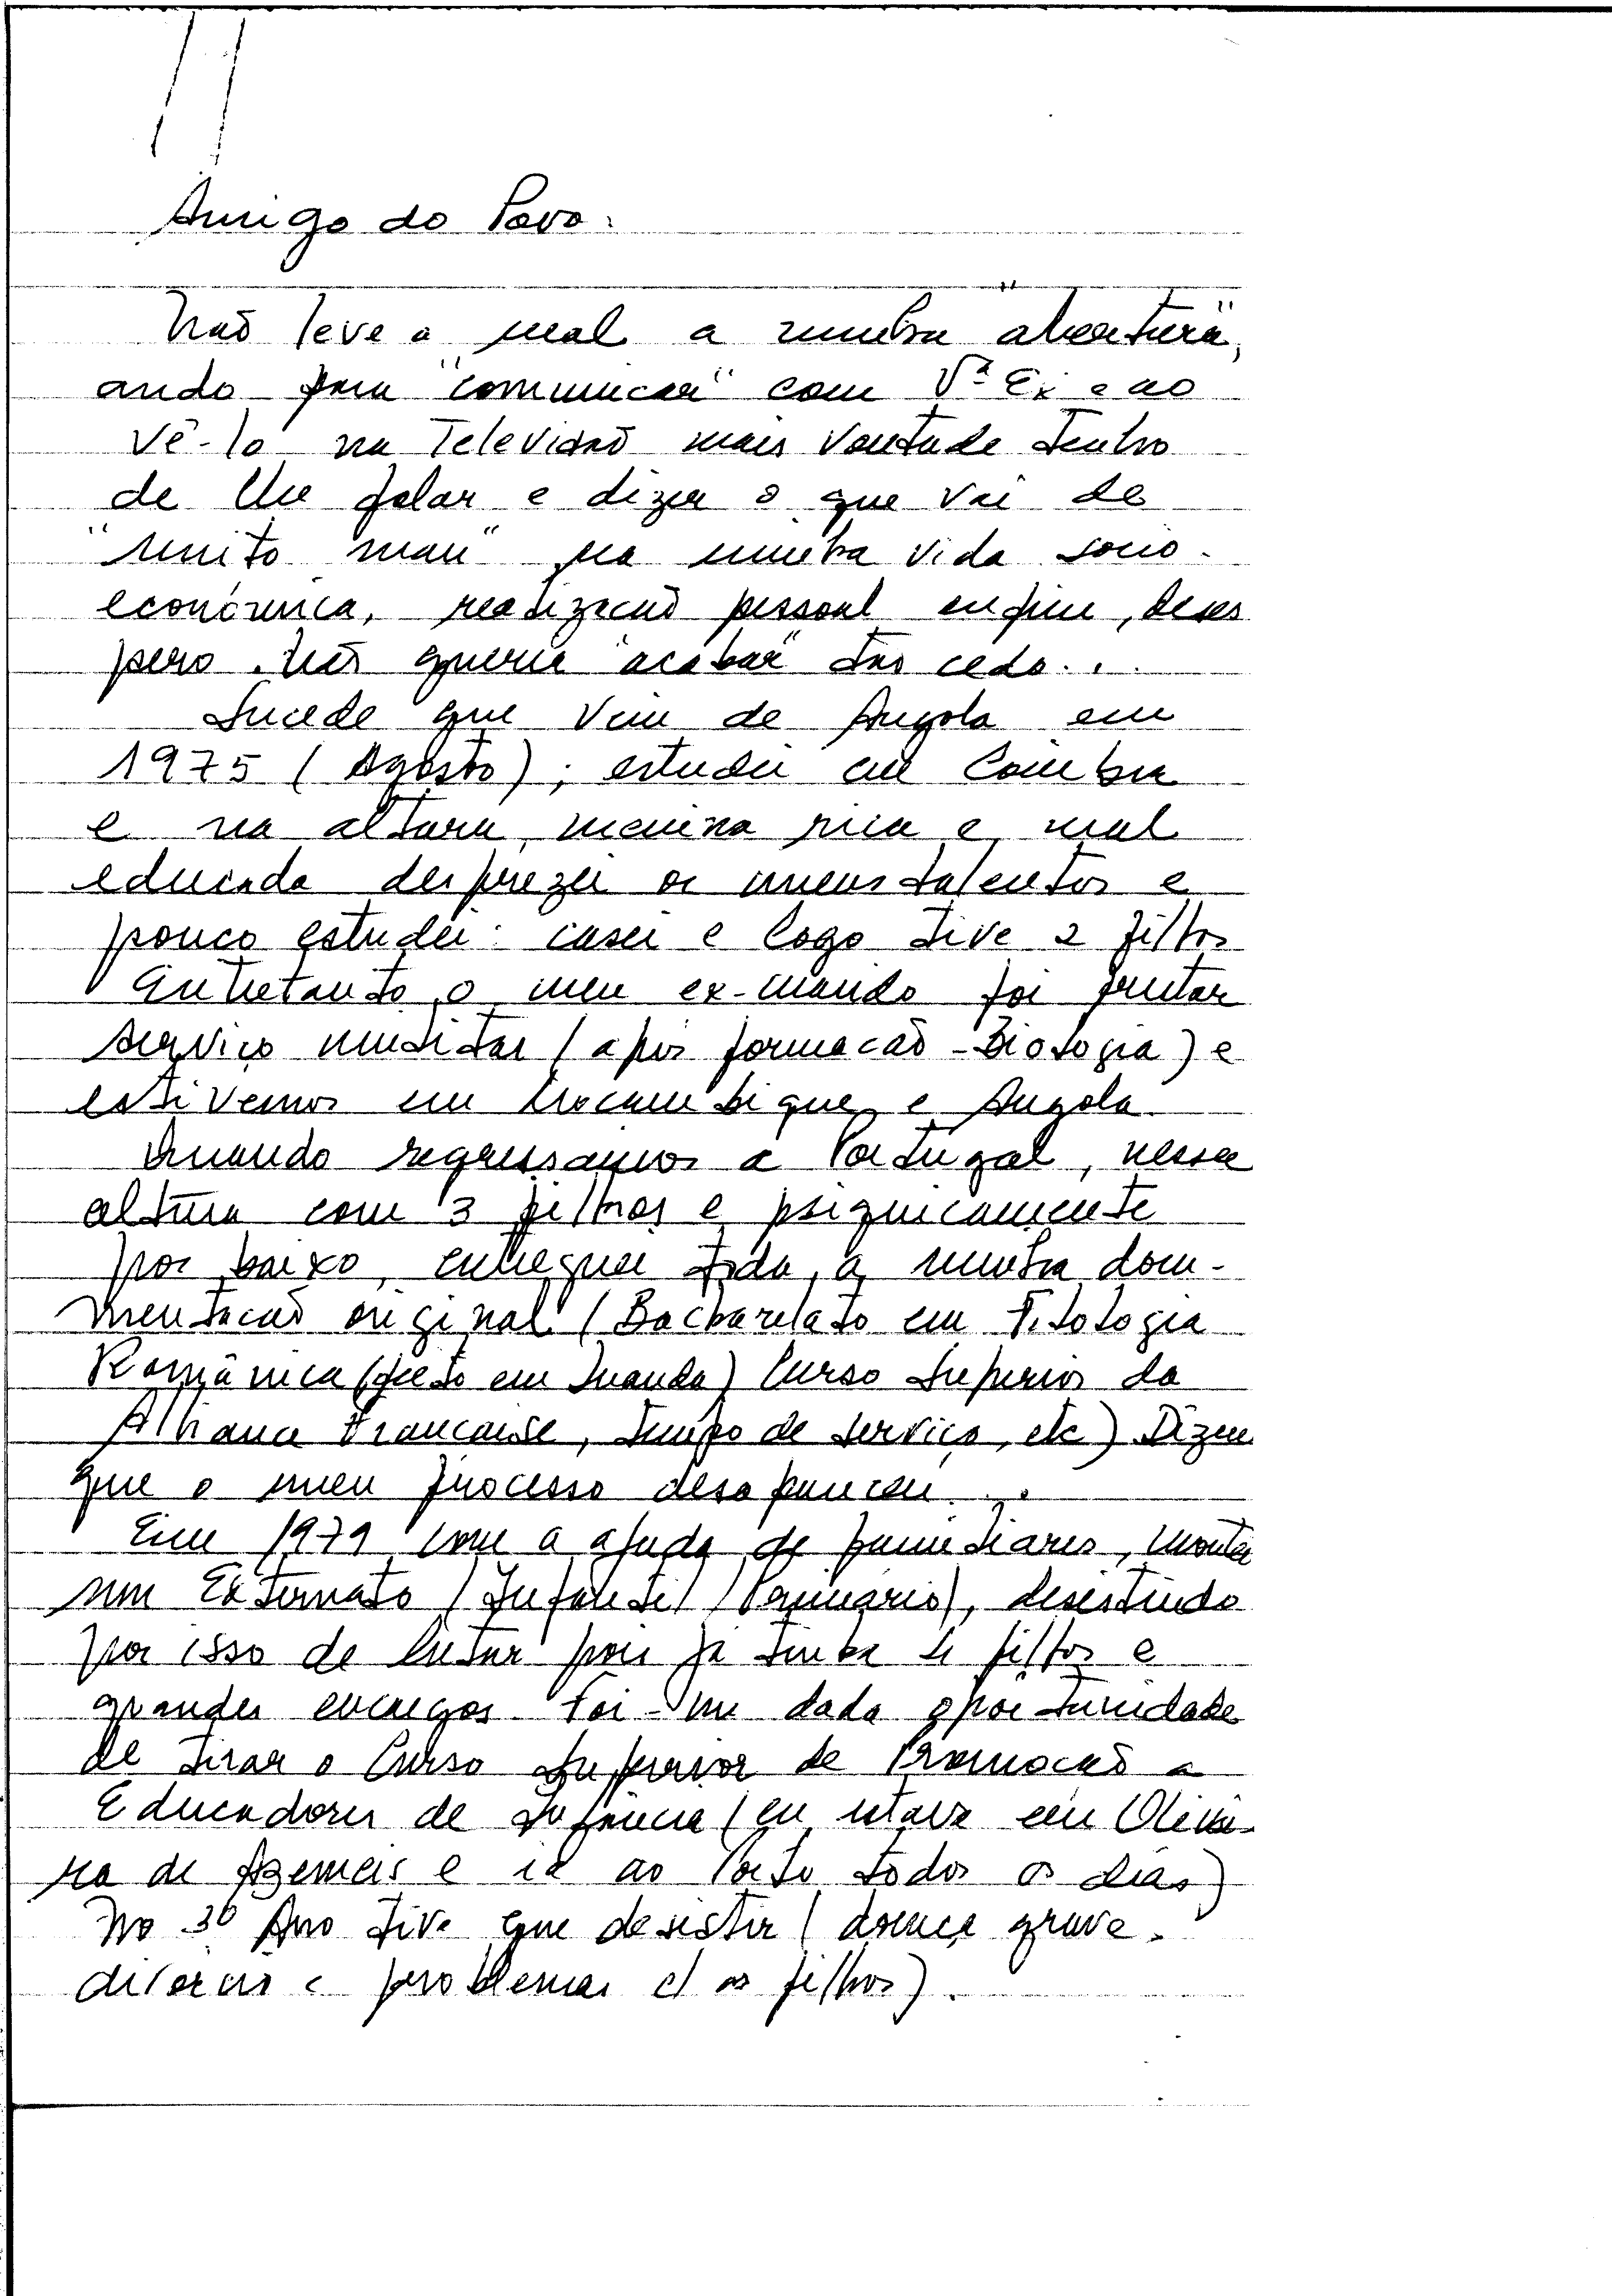 Amigo do Povo:
Não leve a mal a minha "abertura",
ando para "comunicar" com Vª Exª e ao
vê-lo na Televisão mais vontade tenho
de lhe falar e dizer o que vai de
"muito mau" na minha vida socio-
económica, realização pessoal enfim, deses
pero. Não queria "acabar" tão cedo...
Sucede que vim de Angola em
1975 (Agosto); estudei em Coimbra
e na altura, menina rica e mal
educada desprezei os meus talentos e
pouco estudei: casei e logo tive 2 filhos
Entretanto, o meu ex-marido foi prestar
serviço militar (após formação - Biologia) e
estivemos em Moçambique e Angola.
Quando regressámos a Portugal, nessa
altura com 3 filhos e psiquicamente
por baixo, entreguei toda a minha docu-
mentação original (Bacharelato em Filologia
Românica (feito em Luanda) Curso Superior da
Alliance Française, tempo de serviço, etc) Dizem
que o meu processo desapareceu...
Em 1979 com a ajuda de familiares, montei
um Externato (Infantil / Primário), desistindo
por isso de lutar pois já tinha 4 filhos e
grandes encargos. Foi-me dada oportunidade
de tirar o Curso Superior de Promoção a
Educadores de Infância (eu estava em Olivei-
ra de Azemeis e ia ao Porto todos os dias)
No 3º Ano tive que desistir (doença grave.
divorcio e problemas c/ os filhos).